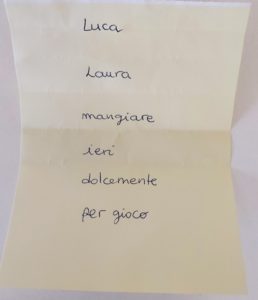 Luca
Laura
mangiare
ieri
dolcemente
per gioco